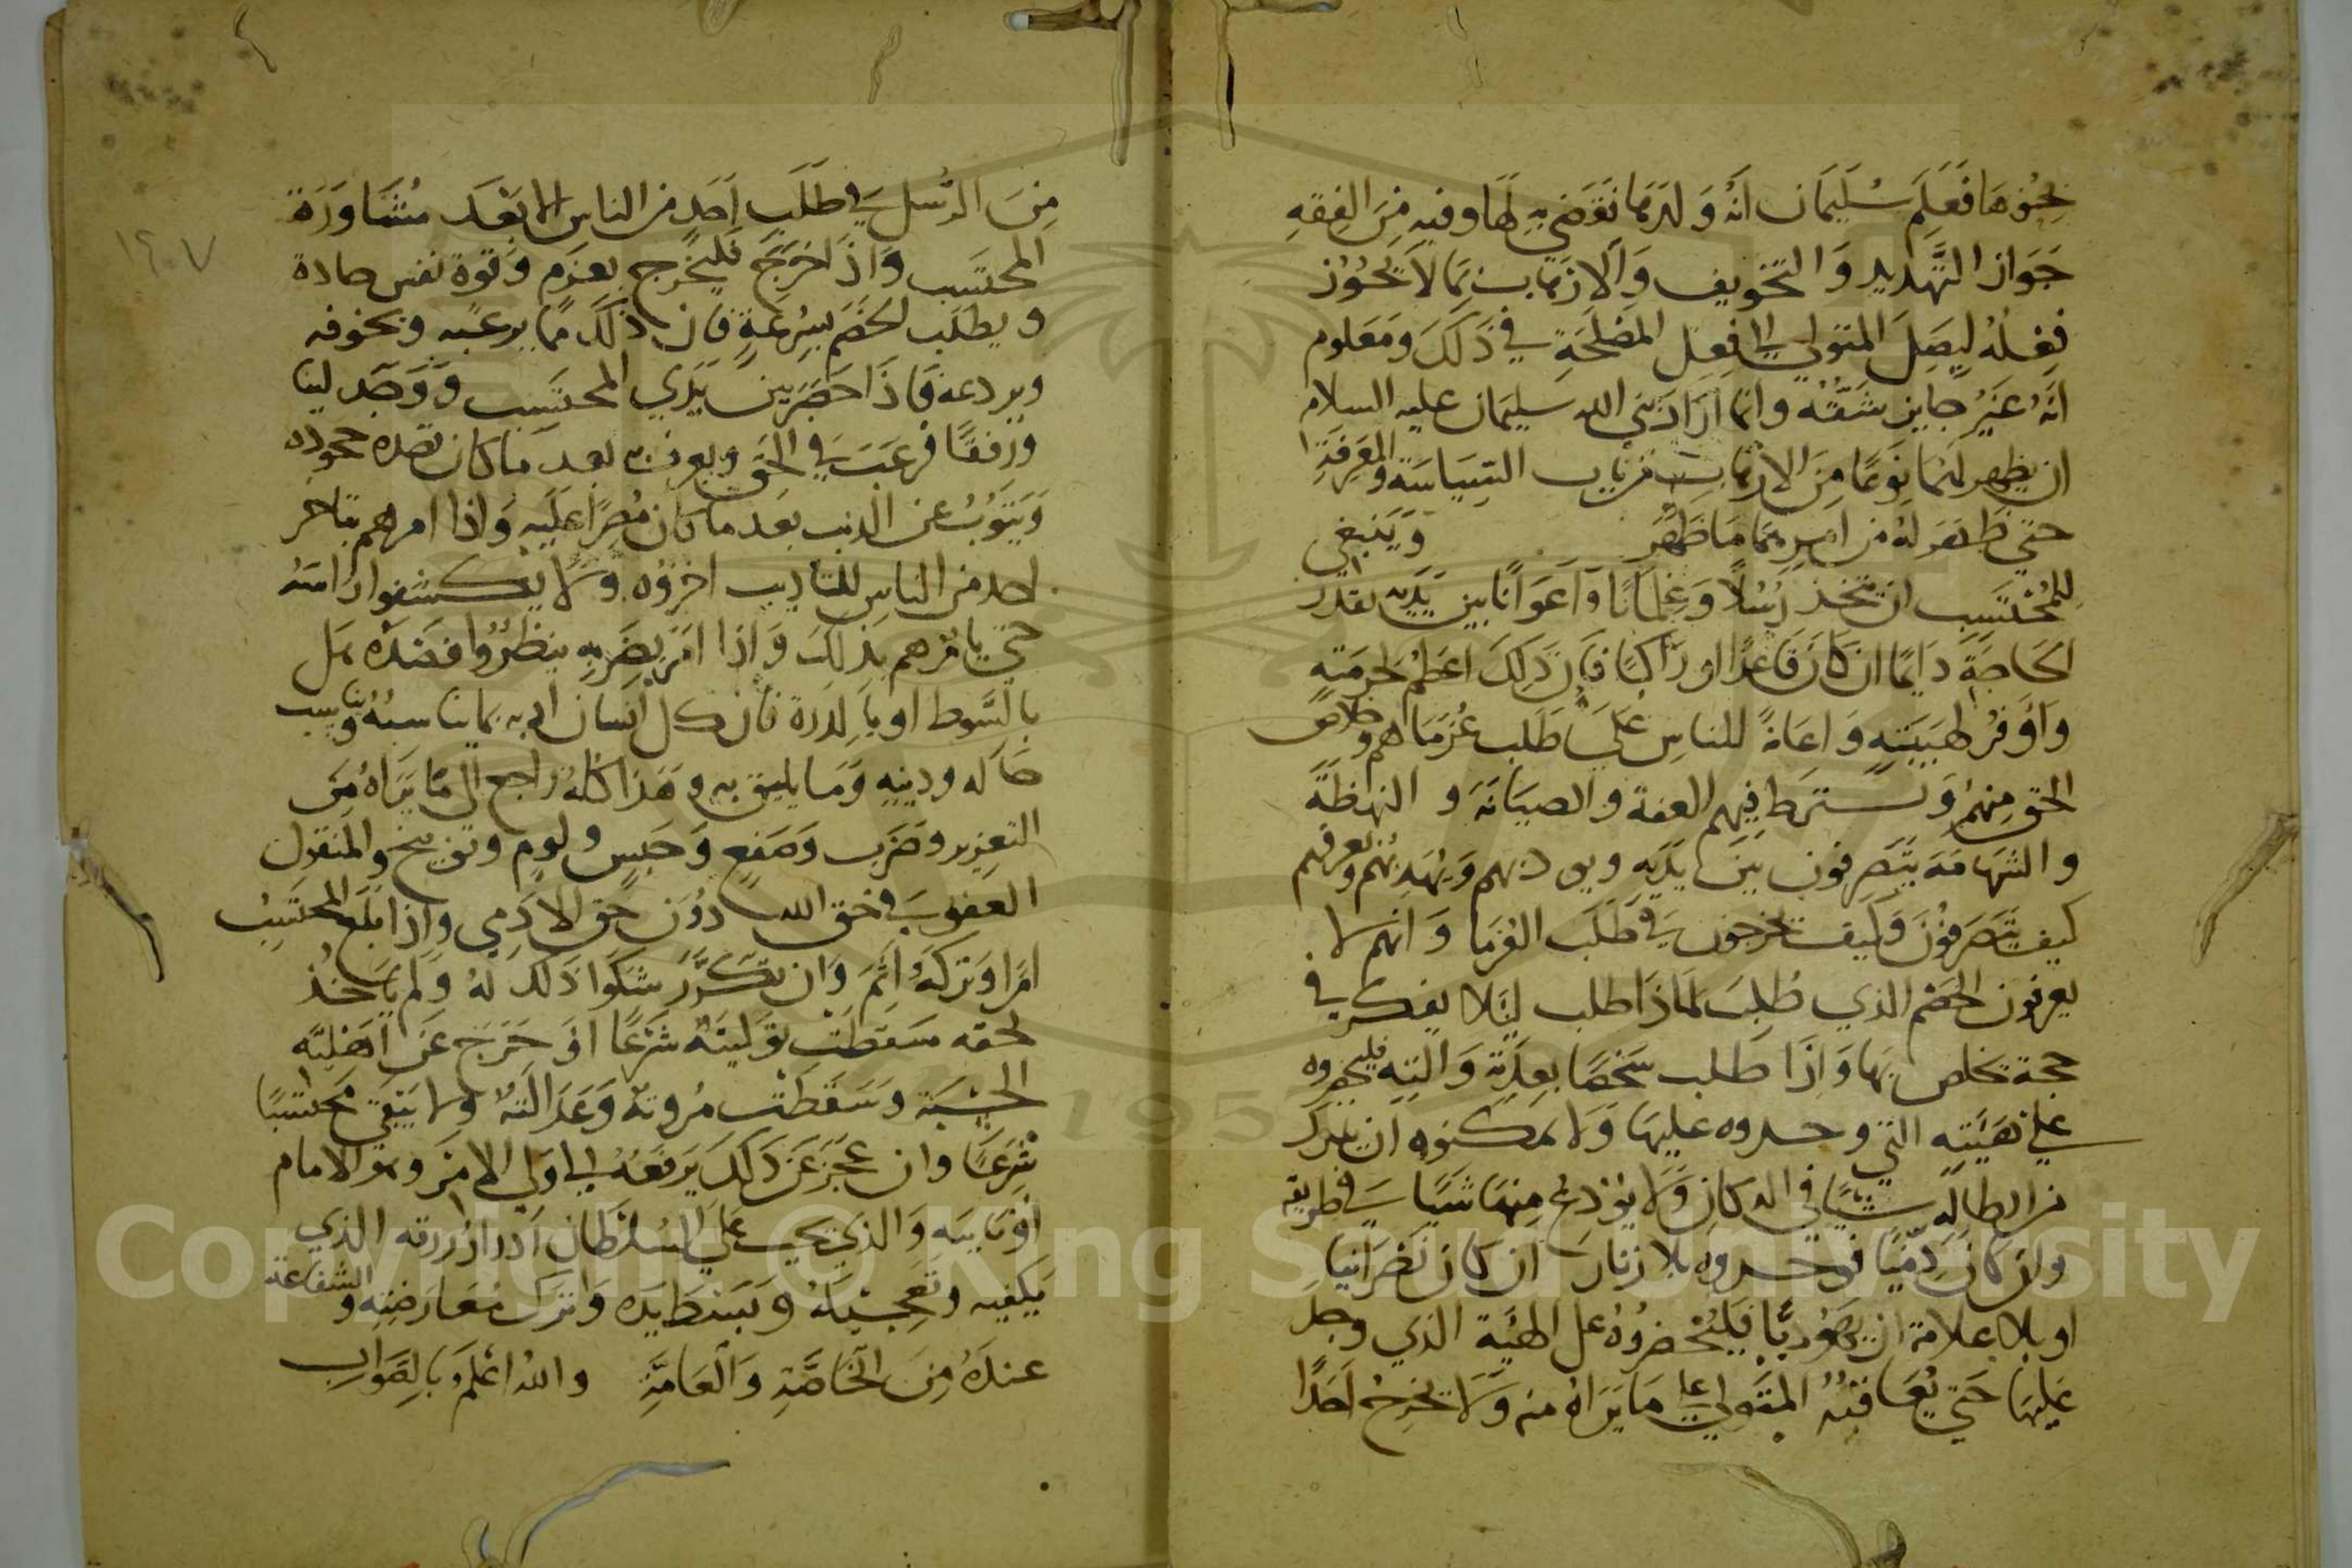 بحنوها فعلم سليمان انه ولدها فقضي به لها وفيه من الفقه
جواز التهديد والتخويف والارهاب بما لا يجوز
فعله ليصل المتولي الي فعل المصلحة في ذلك ومعلوم
انه غير جايز شقه وانما اراد نبي الله سليمان عليه السلام
ان يظهر لهما نوعا من الارهاب من باب السياسة والمعرفة
حتي ظهر له من امرهما ما ظهر وينبغي
للمحتسب ان يتخذ رسلا وغلمانا واعوانا بين يديه بقدر
الحاجة دايما ان كان قاعدا او راكبا فان ذلك اعظم لحرمته
واوفر لهيبته واعانة للناس علي طلب غرماهم وخلاص
الحق منهم ويشترط فيهم العفة والصيانة والنهظة
والشهامة يتصرفون بين يديه ويودبهم ويهذبهم ويعرفهم
كيف يتصرفون وكيف يخرجون في طلب الغرما وانهم لا
يعرفون الخصم الذي طلب لماذا طلب ليلا يفكر في
حجة تخلص بها واذا طلب شخصا بعدته والته فليحضروه
علي هيئته التي وجدوه عليها ولا يمكنوه ان يترك
من الطاله شيئا في الدكان ولا يودع منها شيا في طريقه
وان كان ذميا فوجدوه بلا زنار ان كان نصرانيا
او بلا علامة ان يهوديا فليحضروه عل الهيئة الذي وجد
عليها حتي يعاقبه المتولي علي ما يراه منه ولا يخرج احدا
من الرسل في طلب احد من الناس الا بعد مشاورة
١٢٠٧
المحتسب واذا خرج فليخرج بعزم وقوة نفس حادة
ويطلب الخصم بسرعة فان ذلك مما يرعبه ويخوفه
ويردعه فاذا حضر بين يدي المحتسب ووجد لينا
ورفقا فرعب في الحق ويعرف به بعد ما كان قصده جحوده
ويتوب عن الذنب بعد ما كان مصرا عليه واذا امرهم بتاخر
احد من الناس للتاديب اخروه ولا يكشفوا راسه
حتي يامرهم بذلك واذا امر بضربه ينظروا قصده هل
بالسوط او بالدرة فان كل انسان ادبه بما يناسبه ويناسب
حاله ودينه وما يليق به وهذا كله راجع الى ما يراه من
التعزير وضرب وصفع وحبس ولوم وتوبيخ والمنقول
العفو في حق الله دون حق الادمي واذا بلغ المحتسب
امرا وتركه اثم وان تكرر شكوا ذلك له ولم ياخذ
لحقه سقطت توليته شرعا او خرج عن اهليته
الحسبة وسقطت مروته وعدالته ولا يبقي محتسبا
شرعا وان عجز عن ذلك يرفعه الي اولي الامر وهو الامام
او نايبه والذي يجب علي السلطان ادرار رزقه الذي
يكفيه وتعجيله وببسط يده واترك معارضته والشفاعة
عنده من الخاصة والعامة والله اعلم بالصواب